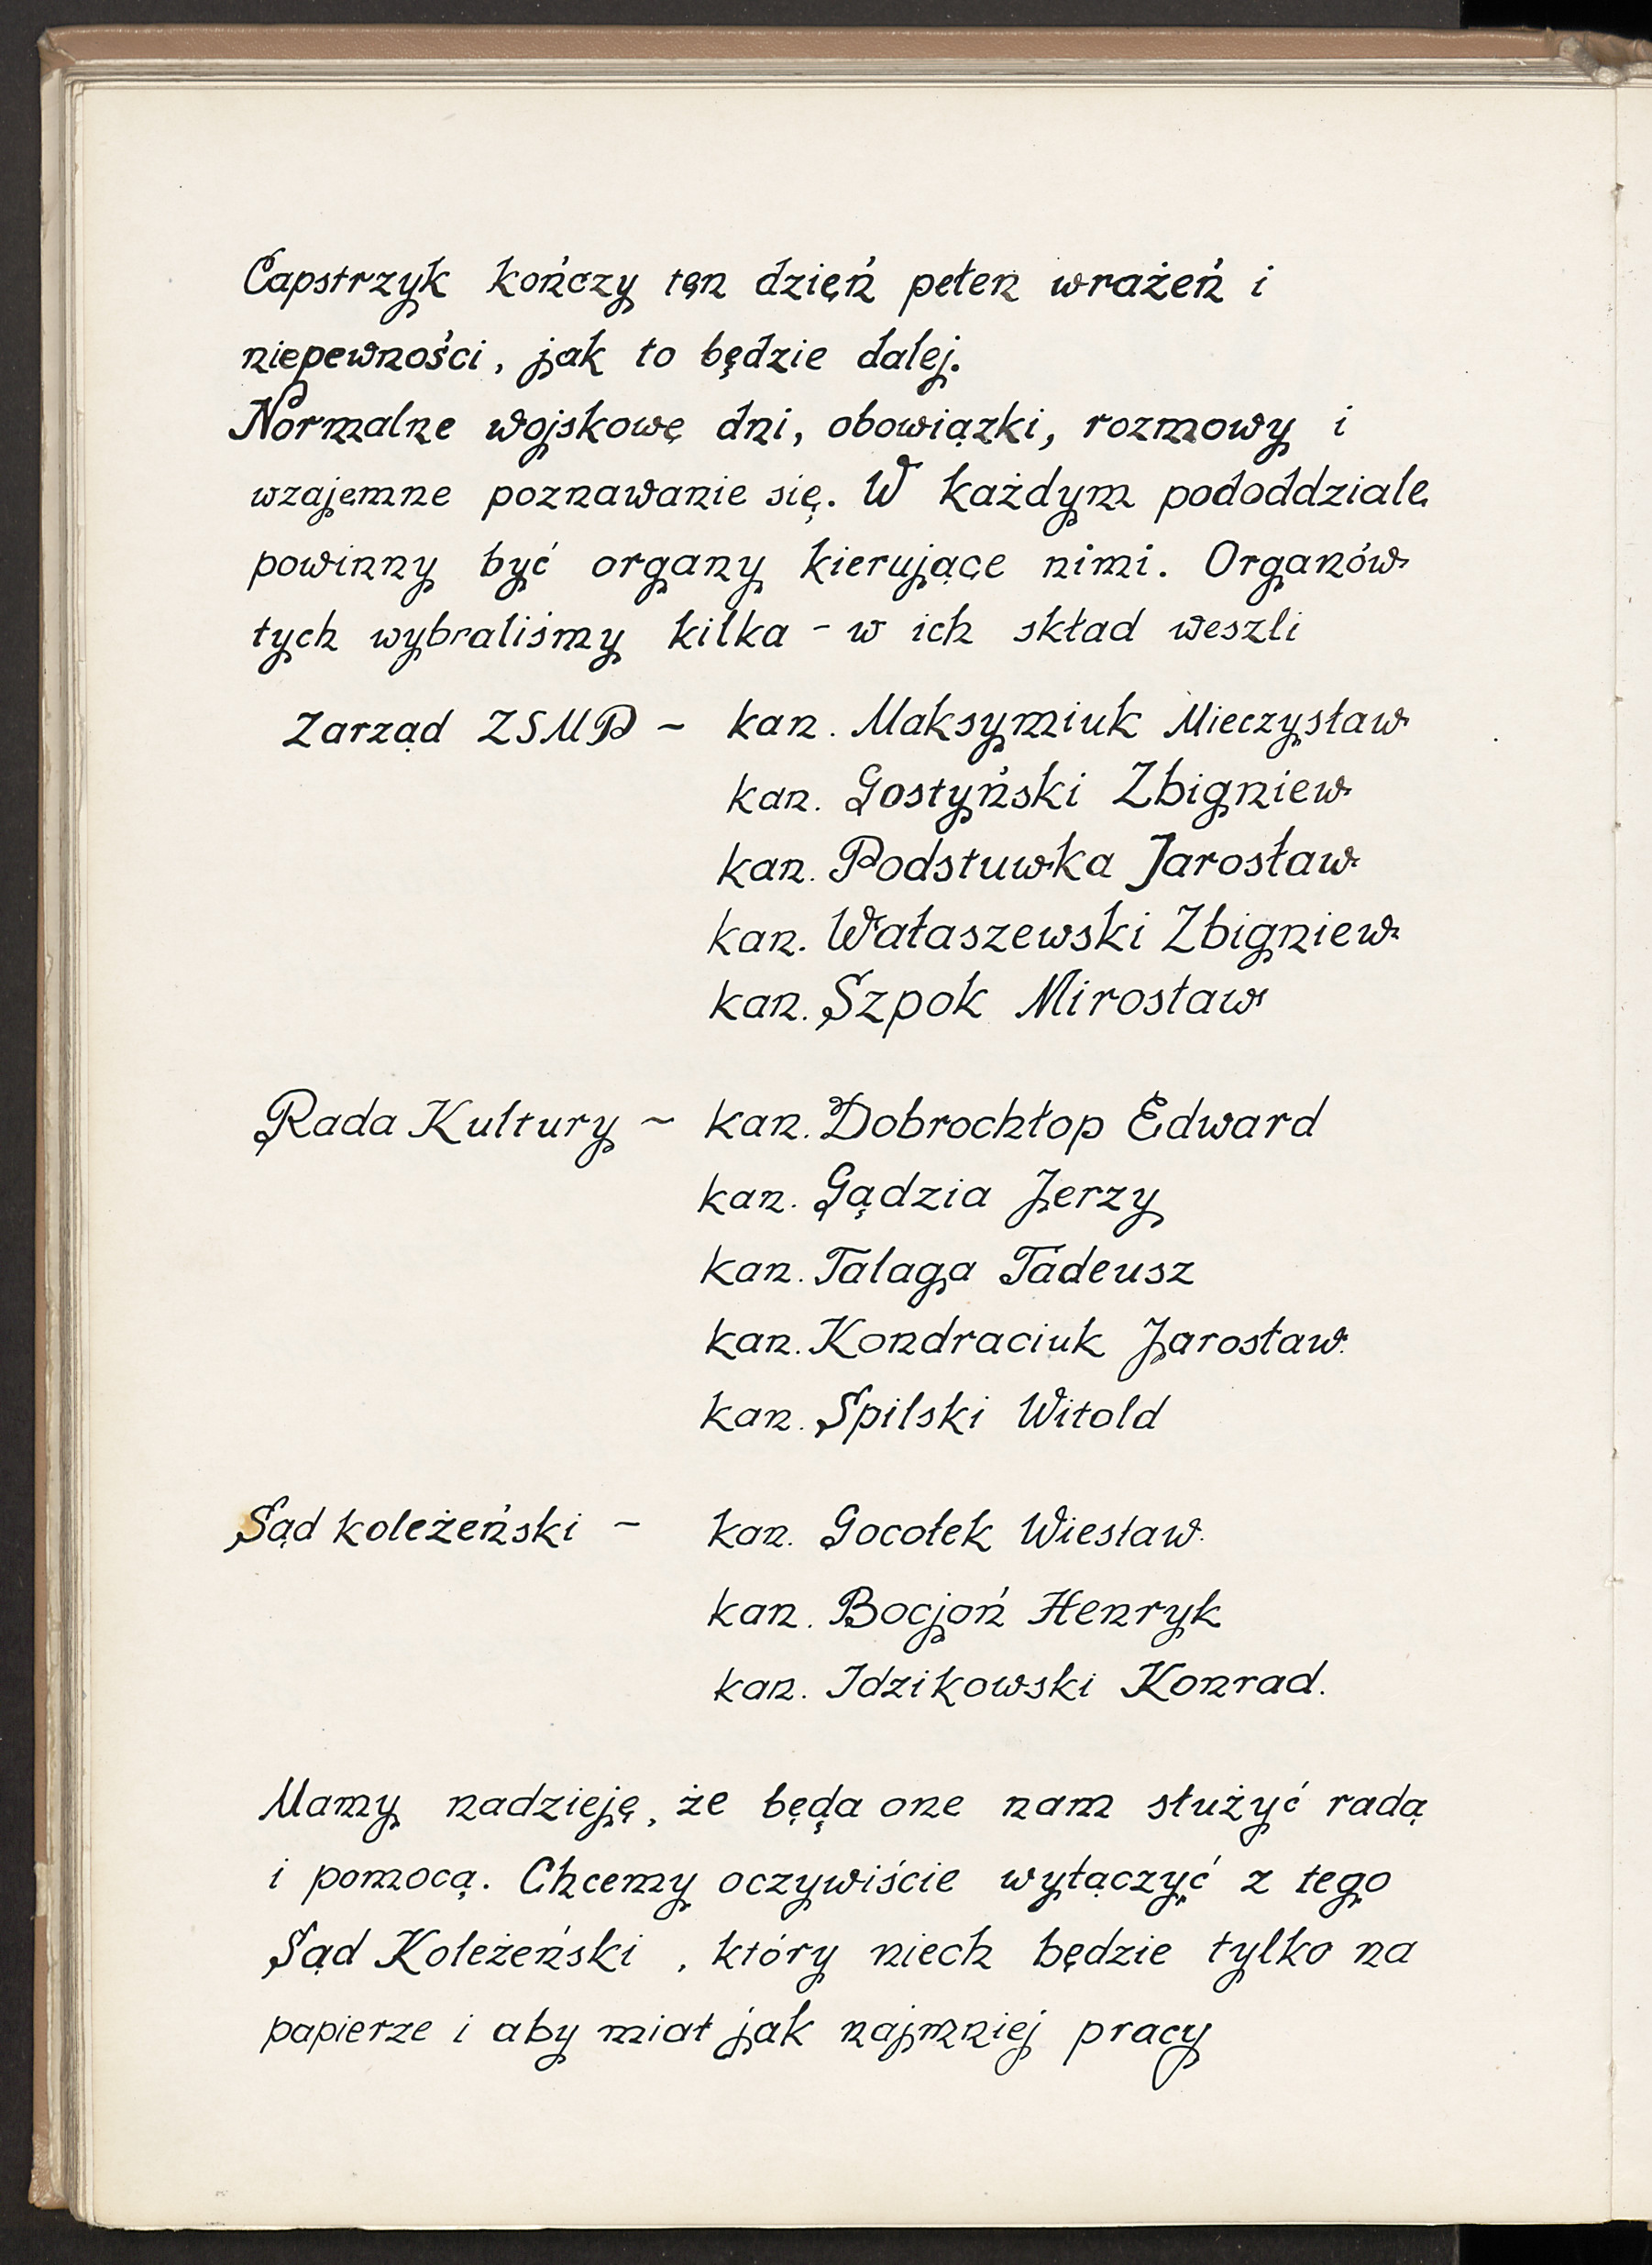 Capstrzyk kończy ten dzień pełen wrażeń i
niepewności, jak to będzie dalej.
Normalne wojskowe dni, obowiązki, rozmowy i
wzajemne poznawanie się. W każdym pododdziale
powinny być organy kierujące nimi. Organów
tych wybraliśmy kilka - w ich skład weszli
Zarząd ZSMP - kan. Maksymiuk Mieczysław
kan. Gostyński Zbigniew
kan. Podstuwka Jarosław
kan. Wałaszewski Zbigniew
kan. Szpok Mirosław
Rada Kultury - kan. Dobrochłop Edward
kan. Gądzia Jerzy
kan. Talaga Tadeusz
kan. Kondraciuk Jarosław
kan. Spilski Witold
Sąd koleżeński - kan. Gocołek Wiesław
kan. Bocjoń Henryk
kan. Idzikowski Konrad.
Mamy nadzieję, że będą one nam służyć radą
i pomocą. Chcemy oczywiście wyłączyć z tego
Sąd Koleżeński, który niech będzie tylko na
papierze i aby miał jak najmniej pracy